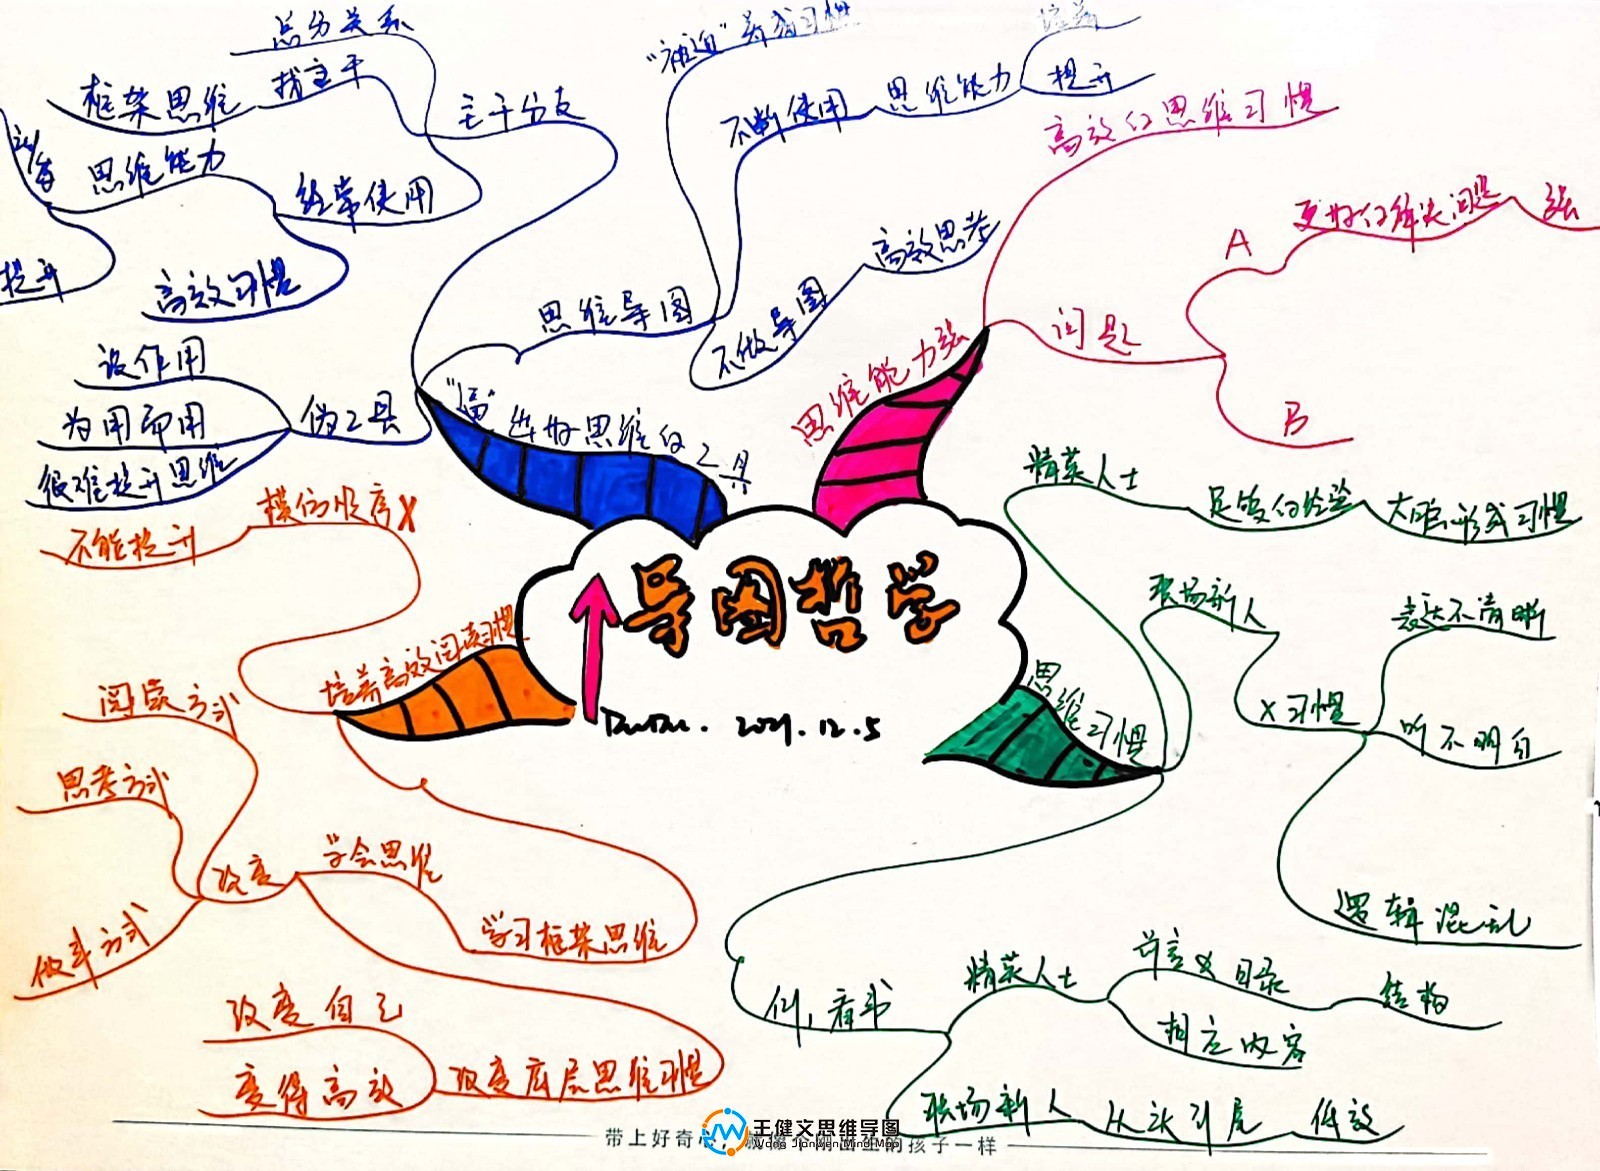 导图哲学
2021.12.5
思维能力强
高效的思维习惯
问题
A
更好的解决问题
强
B
思维习惯
精英人士
足够的经验
大脑形成习惯
职场新人
X习惯
表达不清晰
听不明白
逻辑混乱
例,看书
精英人士
目录
结构
相应内容
职场新人
从头到尾
低效
培养高效阅读习惯
模仿顺序X
不能提升
学习框架思维
学会思维
改变
阅读方式
思考方式
做事方式
改变底层思维习惯
改变自己
变得高效
思维的工具
主干分支
总分关系
找主干
框架思维
经常使用
思维能力
培养
提升
高效习惯
思维导图
"被迫"养成习惯
不断使用
思维能力
培养
提升
不做导图
高效思考
伪工具
没作用
为用而用
很难提升思维
带上好奇心,就像个刚出生的孩子一样
王健文思维导图
Wang Jianwen Mind Map